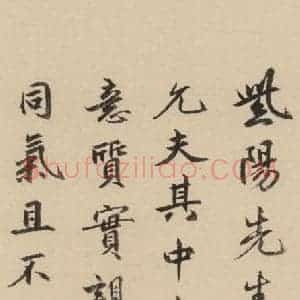 紫陽先生
允夫其中
意質實
同氣且不
shufaziliao.com